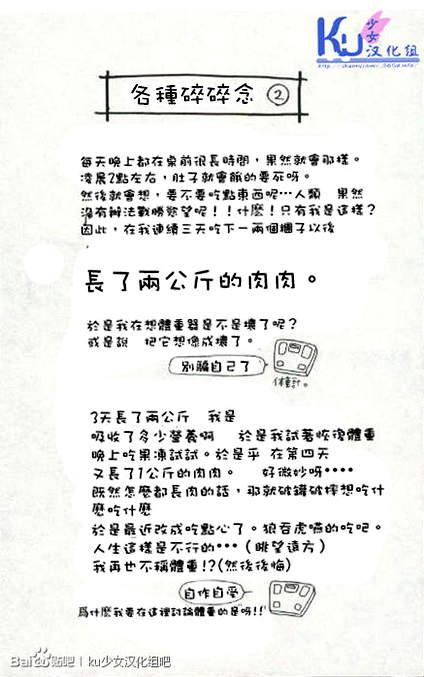 KU少女汉化组
各種碎碎念 ②
每天晚上都在桌前很長時間，果然就會那樣。
凌晨2點左右，肚子就會餓的要死呀。
然後就會想，要不要吃點東西呢…人類　果然
沒有辦法戰勝慾望呢！！什麼！只有我是這樣？
因此，在我連續三天吃下一兩個糰子以後
長了兩公斤的肉肉。
於是我在想體重器是不是壞了呢？
或是說　把它想像成壞了。
別騙自己了
体重計。
3天長了兩公斤　我是
吸收了多少營養啊　於是我試著恢復體重
晚上吃果凍試試。於是乎 在第四天
又長了1公斤的肉肉。　好微妙呀‥‥
既然怎麼都長肉的話，那就破罐破摔想吃什
麼吃什麼
於是最近改成吃點心了。狼吞虎嚥的吃吧。
人生這樣是不行的…（眺望遠方）
我再也不稱體重!?(然後後悔)
自作自受
爲什麼我要在這裡討論體重的是呀!!
Bai贴吧 | ku少女汉化组吧